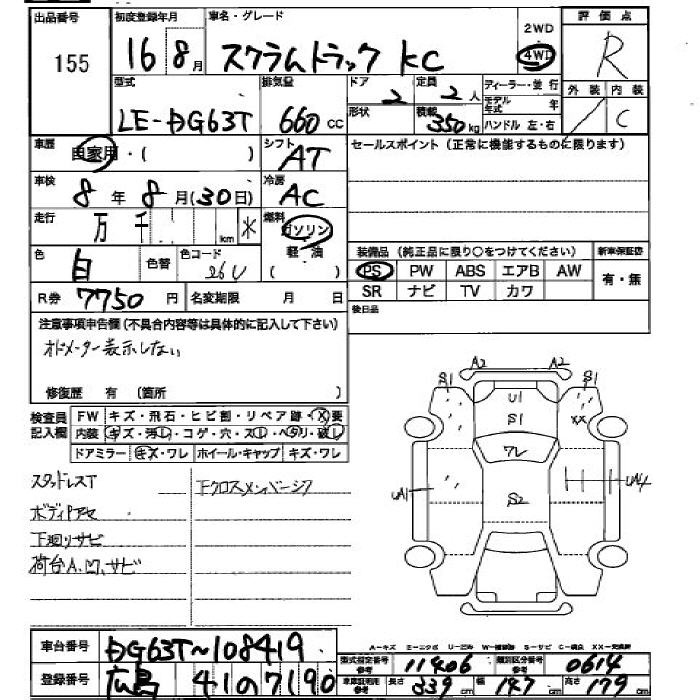 出品番号
155
初度登録年月
16 8月
車名・グレード
スクラムトラック KC
2WD
4WD
評価点
R
外装 内装
C
型式
LE-DG63T
排気量
660 CC
ドア
2
定員
2人
形状
積載
350kg
ディーラー・並行
モデル年式 年
ハンドル 左・右
車歴
自家用・( )
シフト
AT
セールスポイント(正常に機能するものに限ります)
車検
8年 8月(30日)
冷房
AC
走行
万 千 km ※
燃料
ガソリン
軽・油
色
白
色替
色コード
26U
装備品(純正品に限り〇をつけてください)
新車保証書
PS PW ABS エアB AW
有・無
SR ナビ TV カワ
R券 7750円
名変期限 月 日
後日品
注意事項申告欄(不具合内容等は具体的に記入して下さい)
オドメーター表示しない
修復歴 有 (箇所 )
検査員記入欄
FW キズ・飛石・ヒビ割・リペア跡・X要
内装 キズ・汚レ・コゲ・穴・スレ・ヘタリ・破レ
ドアミラー キズ・ワレ ホイール・キャップ キズ・ワレ
スタッドレスT
下クロスメンバーシワ
ボディPアセ
下廻りサビ
荷台A.凹.サビ
A2 A2
S1 S1
U1
S1
XX
ワレ
UA1
S2
UA4
A-キズ E-エクボ U-凹 W-補修跡 S-サビ C-腐食 XX-交換済
車台番号
DG63T~108419
登録番号
広島 41の7190
型式指定番号 参考
11406
類別区分番号 参考
0614
車庫証明用 参考
長さ 339cm
幅 147cm
高さ 179cm